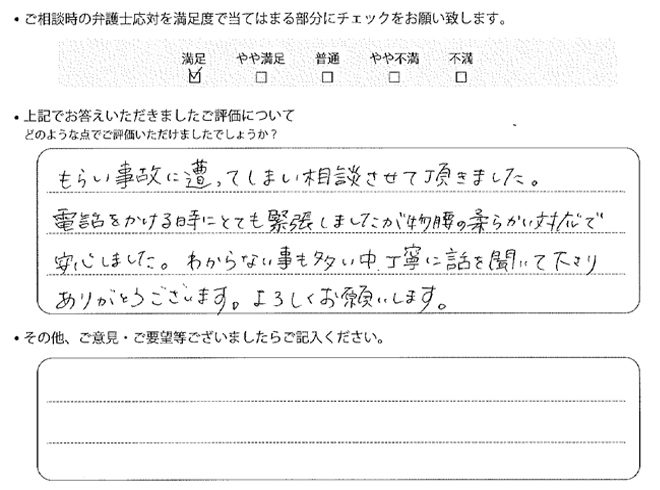 ・ご相談時の弁護士応対を満足度で当てはまる部分にチェックをお願い致します。
満足 やや満足 普通 やや不満 不満
☑ □ □ □ □
・上記でお答えいただきましたご評価について
どのような点でご評価いただけましたでしょうか？
もらい事故に遭ってしまい相談させて頂きました。
電話をかける時にとても緊張しましたが物腰の柔らかい対応で
安心しました。わからない事も多い中、丁寧に話を聞いて下さり
ありがとうございます。よろしくお願いします。
・その他、ご意見・ご要望等ございましたらご記入ください。